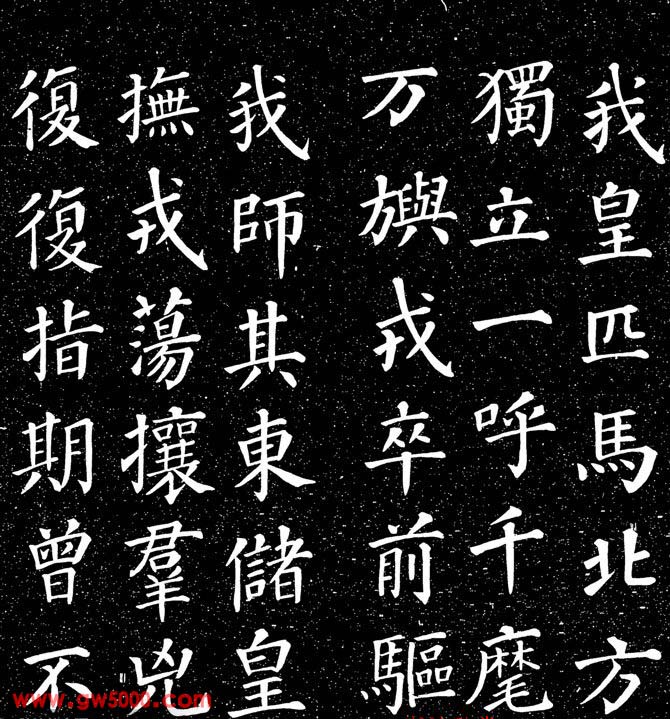 我皇匹馬北方
獨立一呼千麾
万旟戎卒前驅
我師其東儲皇
撫戎蕩攘羣兇
復復指期曾不
www.gw5000.com